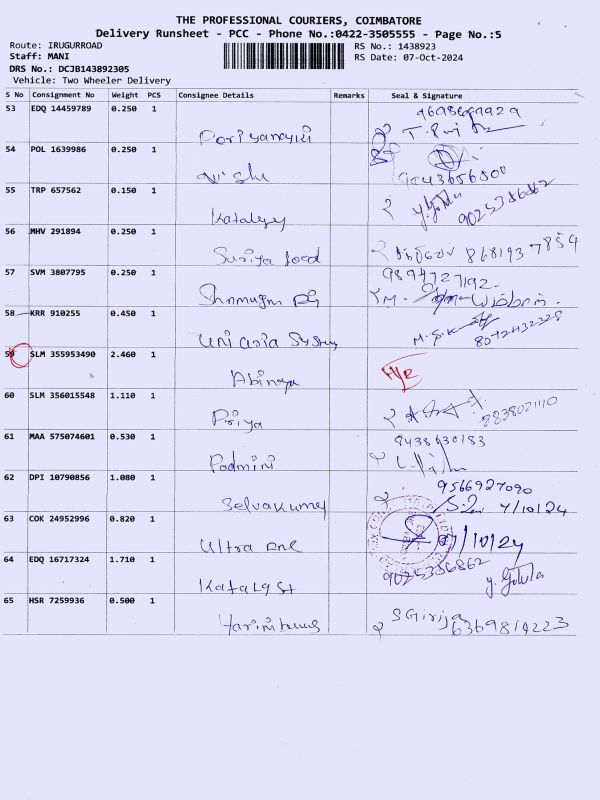 THE PROFESSIONAL COURIERS, COIMBATORE
Delivery Runsheet - PCC - Phone No.:0422-3505555 - Page No.:5
Route: IRUGURROAD
RS No.: 1438923
Staff: MANI
RS Date: 07-Oct-2024
DRS No.: DCJB143892305
Vehicle: Two Wheeler Delivery
S No Consignment No Weight PCS Consignee Details Remarks Seal & Signature
53 EDQ 14459789 0.250 1
Poriyanayki
54 POL 1639986 0.250 1
9043656500
55 TRP 657562 0.150 1
Katalyy 9025356862
56 MHV 291894 0.250 1
Suriya food 868193 7854
57 SVM 3807795 0.250 1
9894727192
58 KRR 910255 0.450 1
8072432328
59 SLM 355953490 2.460 1
Abinaya
60 SLM 356015548 1.110 1
Priya 8838021110
61 MAA 575074601 0.530 1
9438630183
Padmini
62 DPI 10790856 1.080 1
9566927090
Selvakumar 7/10/24
63 COK 24952996 0.820 1
Ultra 07/10/24
64 EDQ 16717324 1.710 1
9025356862
Katalyst Y. Gokila
65 HSR 7259936 0.500 1
S Girija
6369814223